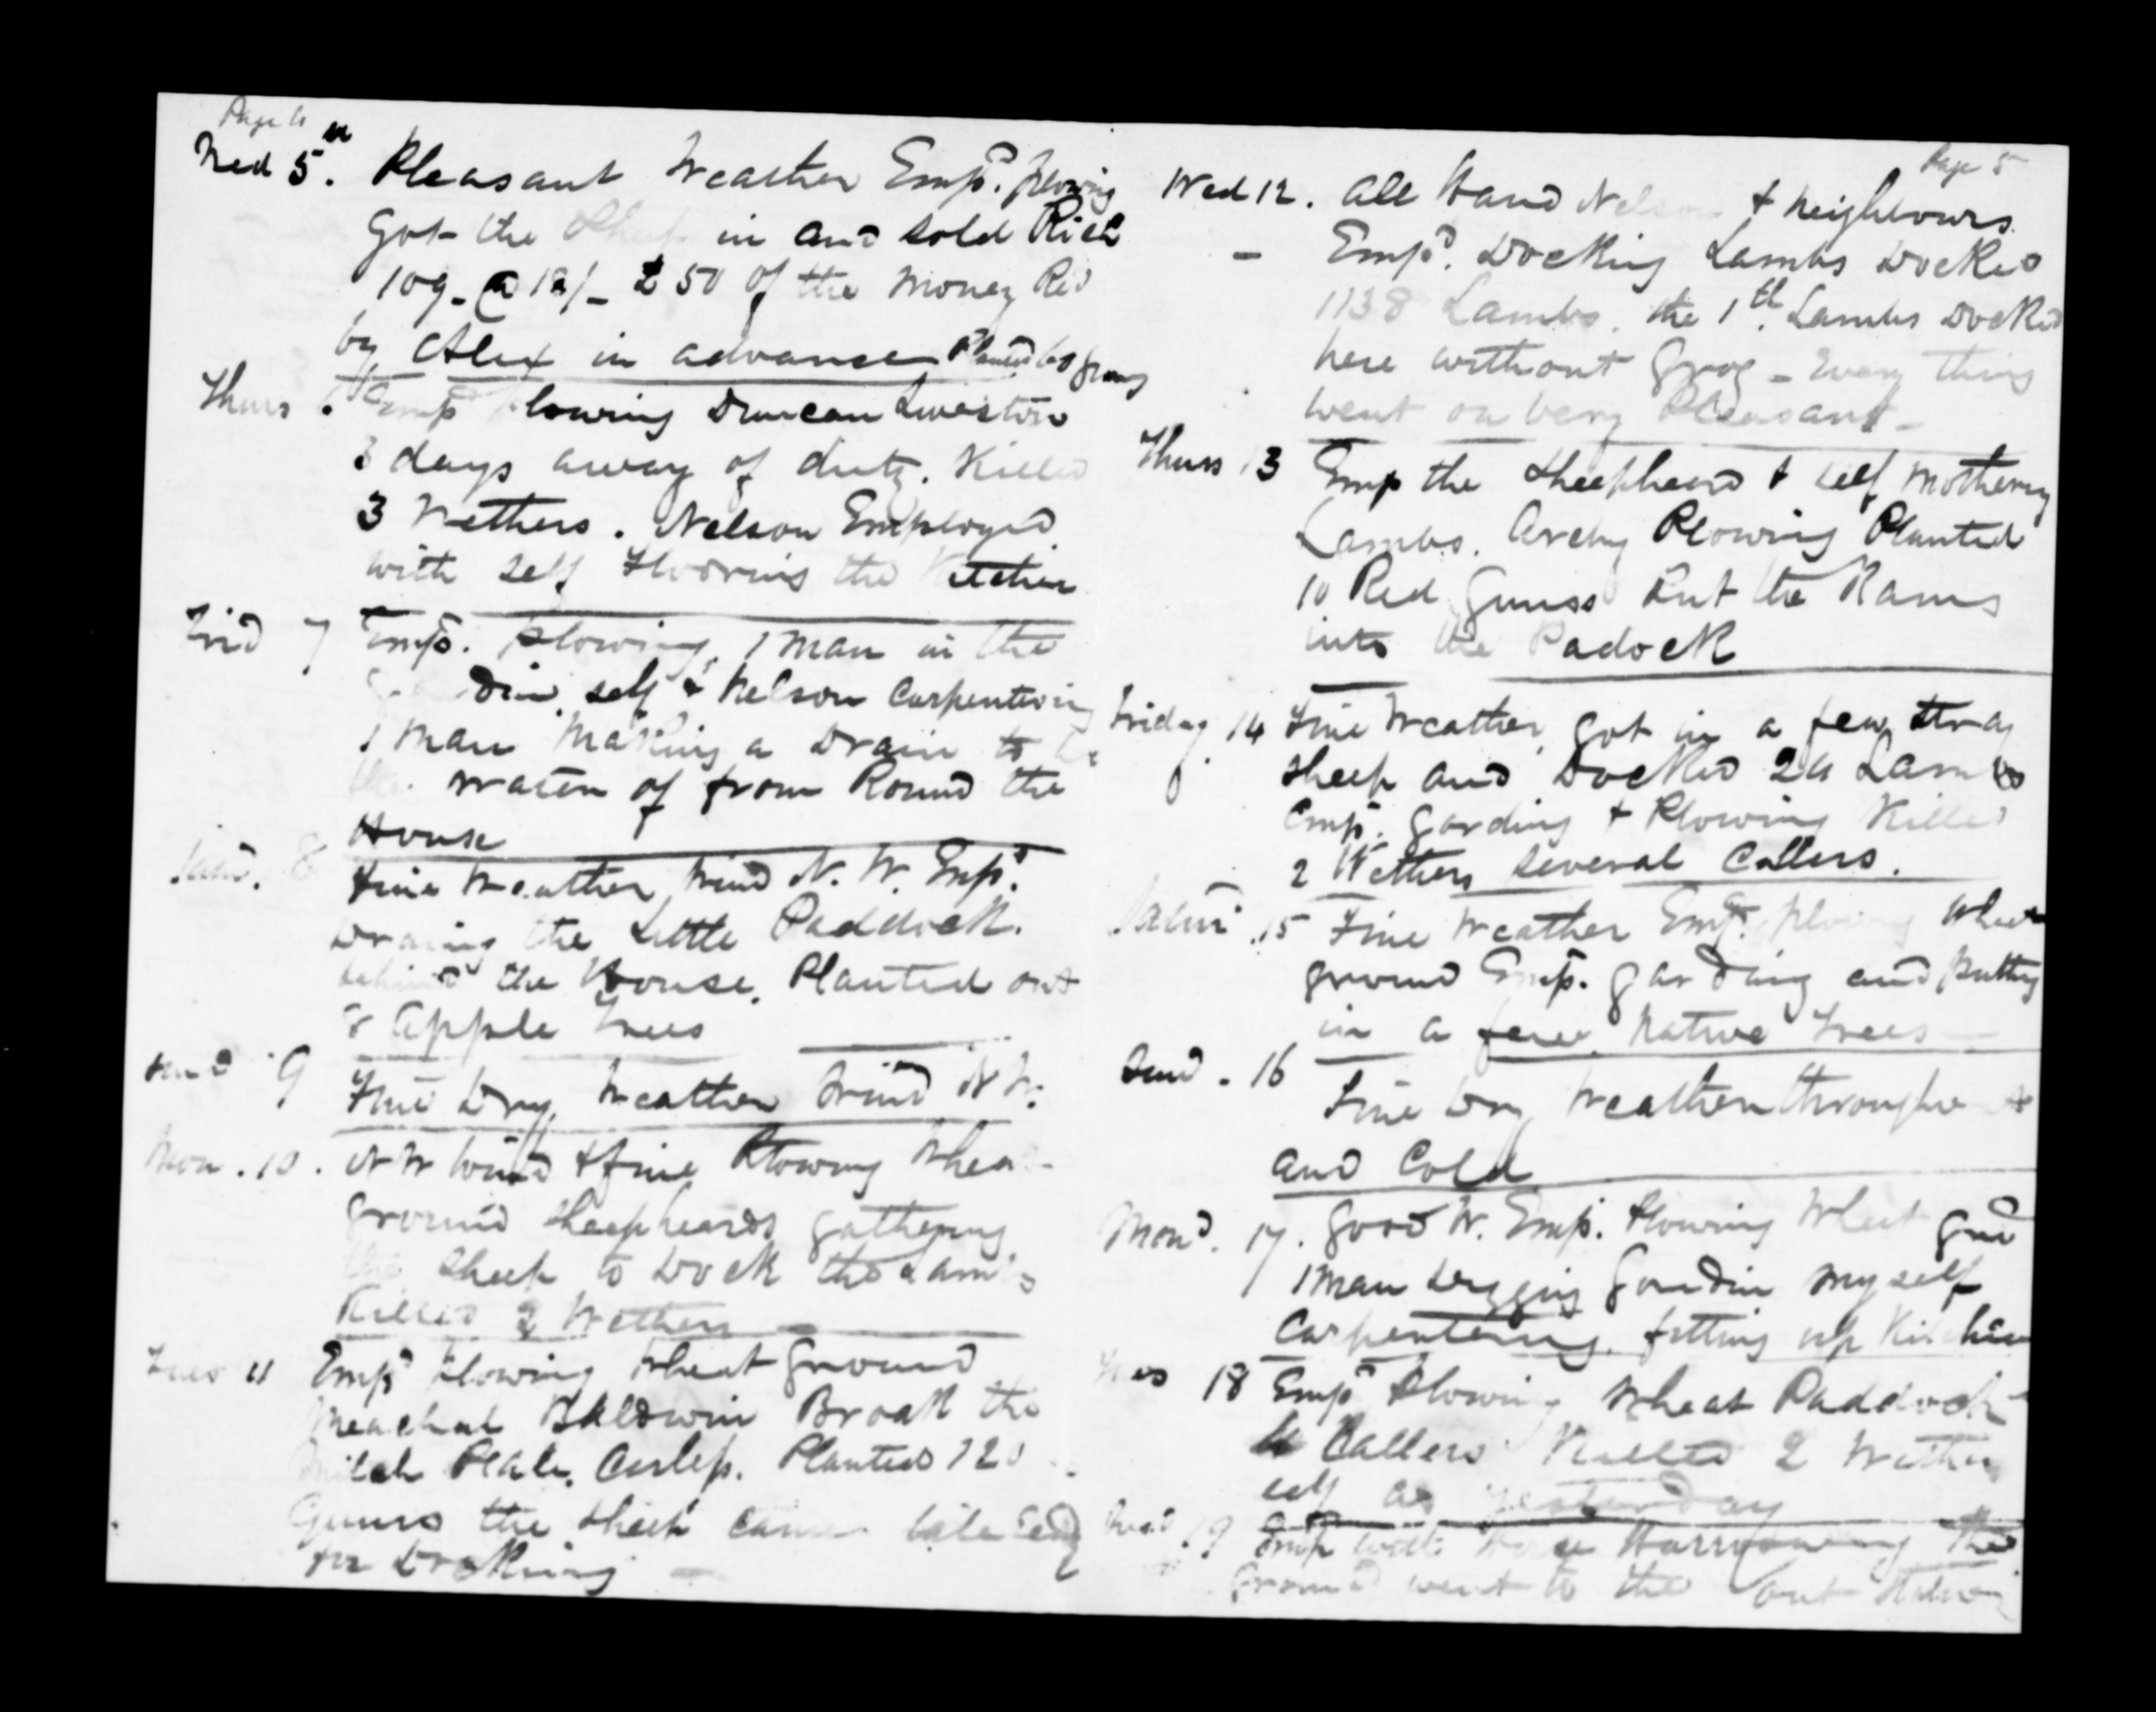 Page 4
Wed 5th. Pleasant Weather Empd. plowing
Got the Sheep in and sold Rich
109 @ 18/- £50 of the money Red
by Alex in advance Planted 60 gums
Thurs 6. Emp Plowing Duncan
3 days away of duty. Killed
3 Wethers. Nelson Employed
with self Flooring the Kitchin
Frid 7 Empd. Plowing, 1 man in the
Gardin, self & Nelson Carpentering
1 man making a Drain to
the water of from Round the
House
Satd. 8 Fine Weather Wind N. W. Empd.
Draining the Little Paddock.
behind the House. Planted out
8 Apple Trees
Sund 9 Fine Dry Weather Wind N W.
Mon. 10. N W Wind & fine Plowing Wheat
ground Sheepheards gathering
the Sheep to Dock the Lambs
Killed 2 Wethers
Tues 11 Empd Plowing Wheat ground
Baldwin Broak the
Planted 120
Gums the Sheep came
for Docking
Page 5
Wed 12. All Hand Nelson & Neighbours.
- Empd. Docking Lambs Docked
1138 Lambs. the 1th. Lambs Docked
here without Grog - Every thing
went on very Pleasant -
Thurs 13 Emp the Sheepheard & self mothering
Lambs. Archy Plowing Planted
10 Red Gumss Put the Rams
into the Padock
Friday 14 Fine Weather, Got in a few stray
sheep and Docked 24 Lambs
Emp. garding & Plowing Killed
2 Wethers several Callers.
Satur 15 Fine Weather Emp. plowing Wheat
ground Emp. garding and putting
in a few Native Trees
Sund. 16
Fine Dry Weather throughout
and Cold
Mond. 17. Good W. Emp. Plowing Wheat Gnd
1 man Digging Gardin myself
Carpentering. fitting up Kitchin
Tues 18 Empd Plowing Wheat Paddock
4 Callers Killed 2 Wethers
self as yesterday
Wed 19 Emp with Harrowing the
Ground went to the out